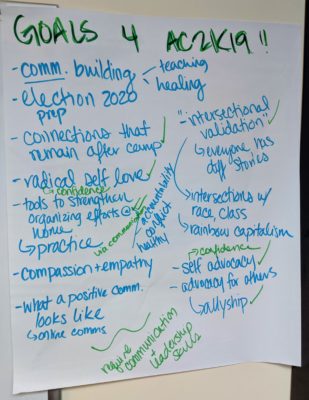 GOALS 4 AC2K19 !!
- comm. building
teaching
healing
- election 2020
prep
- connections that
remain after camp
- radical self love
↳ confidence
- tools to strengthen
organizing efforts @
home
↳ practice
via communication
accountability
conflict
healthy
- compassion + empathy
- what a positive comm.
looks like
↳ online comms
"intersectional
validation"
↳ everyone has
diff stories
↳ intersections w/
race, class
↳ rainbow capitalism
↳ confidence
- self advocacy
- advocacy for others
↳ allyship
require
communication
+ leadership
skills